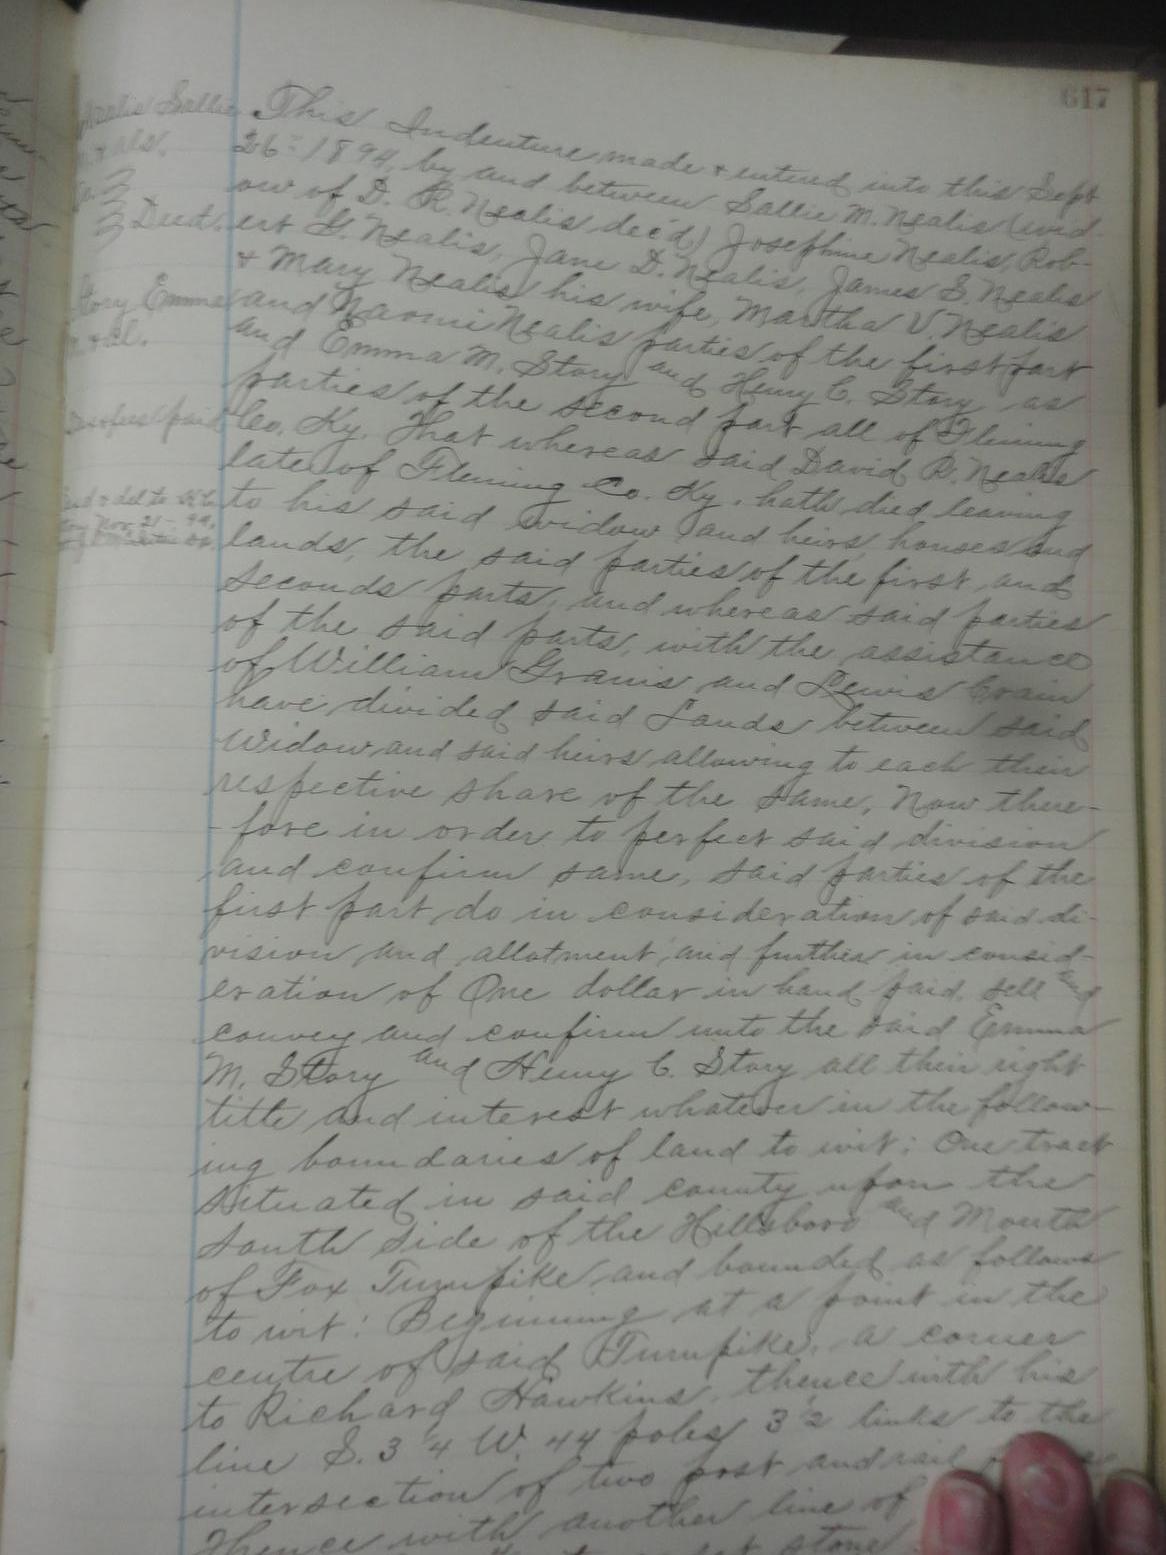 617
Nealis Sallie
M. & als.
To
Deed.
Story Emma
M. & al.
paid
& del to H. C.
Story Nov. 21 - 99.
This Indenture made & entered into this Sept
26th 1894, by and between Sallie M. Nealis (wid-
ow of D. R. Nealis dec'd) Josephine Nealis, Rob-
ert G. Nealis, Jane D. Nealis, James S. Nealis
& Mary Nealis his wife, Martha V. Nealis
and Naomi Nealis parties of the first part
and Emma M. Story and Henry C. Story as
parties of the second part all of Fleming
Co. Ky. That whereas said David R. Nealis
late of Fleming Co. Ky. hath died leaving
to his said widow and heirs, houses and
lands, the said parties of the first and
seconds parts, and whereas said parties
of the said parts, with the assistance
of William Granis and Lewis Crain
have divided said Lands between said
Widow and said heirs allowing to each their
respective share of the same, Now there-
-fore in order to perfect said division
and confirm same, said parties of the
first part, do in consideration of said di-
vision and allotment and further in consid-
eration of One dollar in hand paid, sell and
convey and confirm unto the said Emma
M. Story and Henry C. Story all their right
title and interest whatever in the follow-
ing boundaries of land to wit: One tract
situated in said county upon the
South side of the Hillsboro and Mouth
of Fox Turnpike and bounded as follows
to wit: Beginning at a point in the
centre of said Turnpike, a corner
to Richard Hawkins, thence with his
line S. 3 4 W. 44 poles 32 links to the
intersection of two post and rail
Thence with another line of
stone